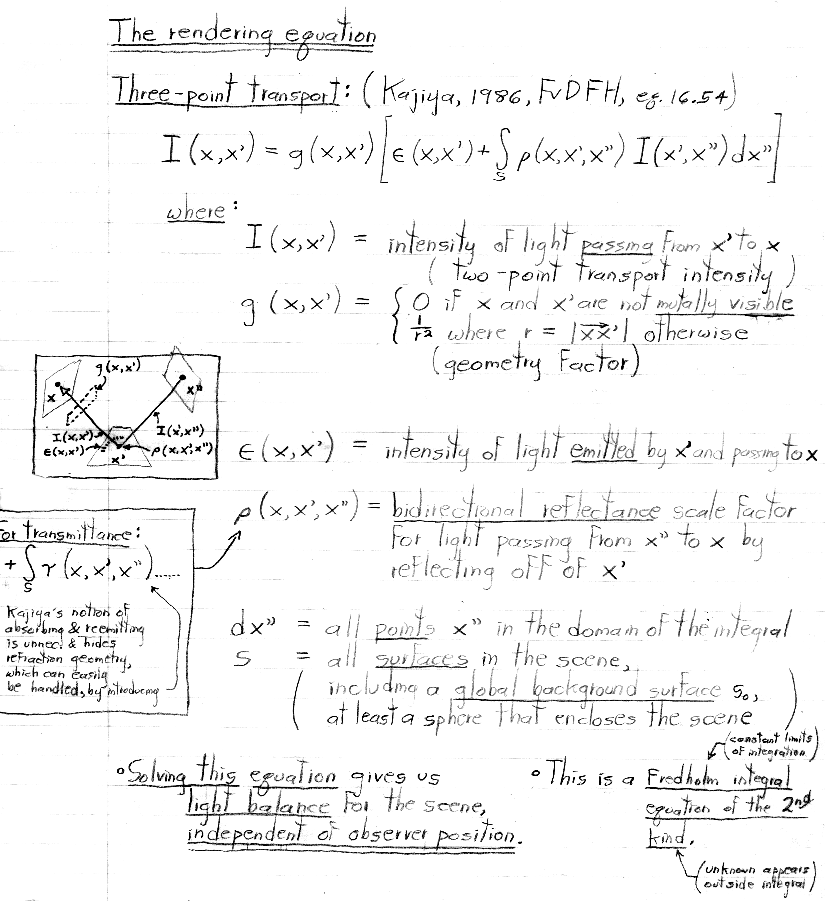 The rendering equation
Three-point transport: (Kajiya, 1986, FvDFH, eq. 16.54)
I(x,x') = g(x,x') [ε(x,x') + ∫S ρ(x,x',x'') I(x',x'') dx'']
where:
I(x,x') = intensity of light passing from x' to x
(two-point transport intensity)
g(x,x') = { 0 if x and x' are not mutally visible
1/r² where r = |xx'| otherwise
(geometry Factor)
g(x,x')
x
x''
I(x,x')
I(x',x'')
ε(x,x')
ρ(x,x',x'')
x'
ε(x,x') = intensity of light emitted by x' and passing to x
ρ(x,x',x'') = bidirectional reflectance scale Factor
For light passing From x'' to x by
reflecting off of x'
For transmittance:
+ ∫S τ(x,x',x'')......
Kajiya's notion of
absorbing & reemitting
is unnec. & hides
refraction geometry,
which can easily
be handled, by introducing
dx'' = all points x'' in the domain of the integral
S = all surfaces in the scene,
(including a global background surface S₀,
at least a sphere that encloses the scene)
°Solving this equation gives us
light balance For the scene,
independent of observer position.
(constant limits
of integration)
°This is a Fredholm integral
equation of the 2nd
kind.
(unknown appears
outside integral)